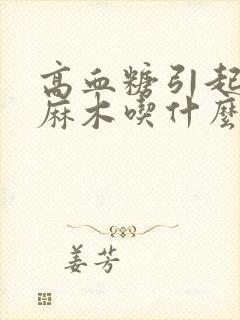 高血糖引起
麻木喫什麼
姜芳